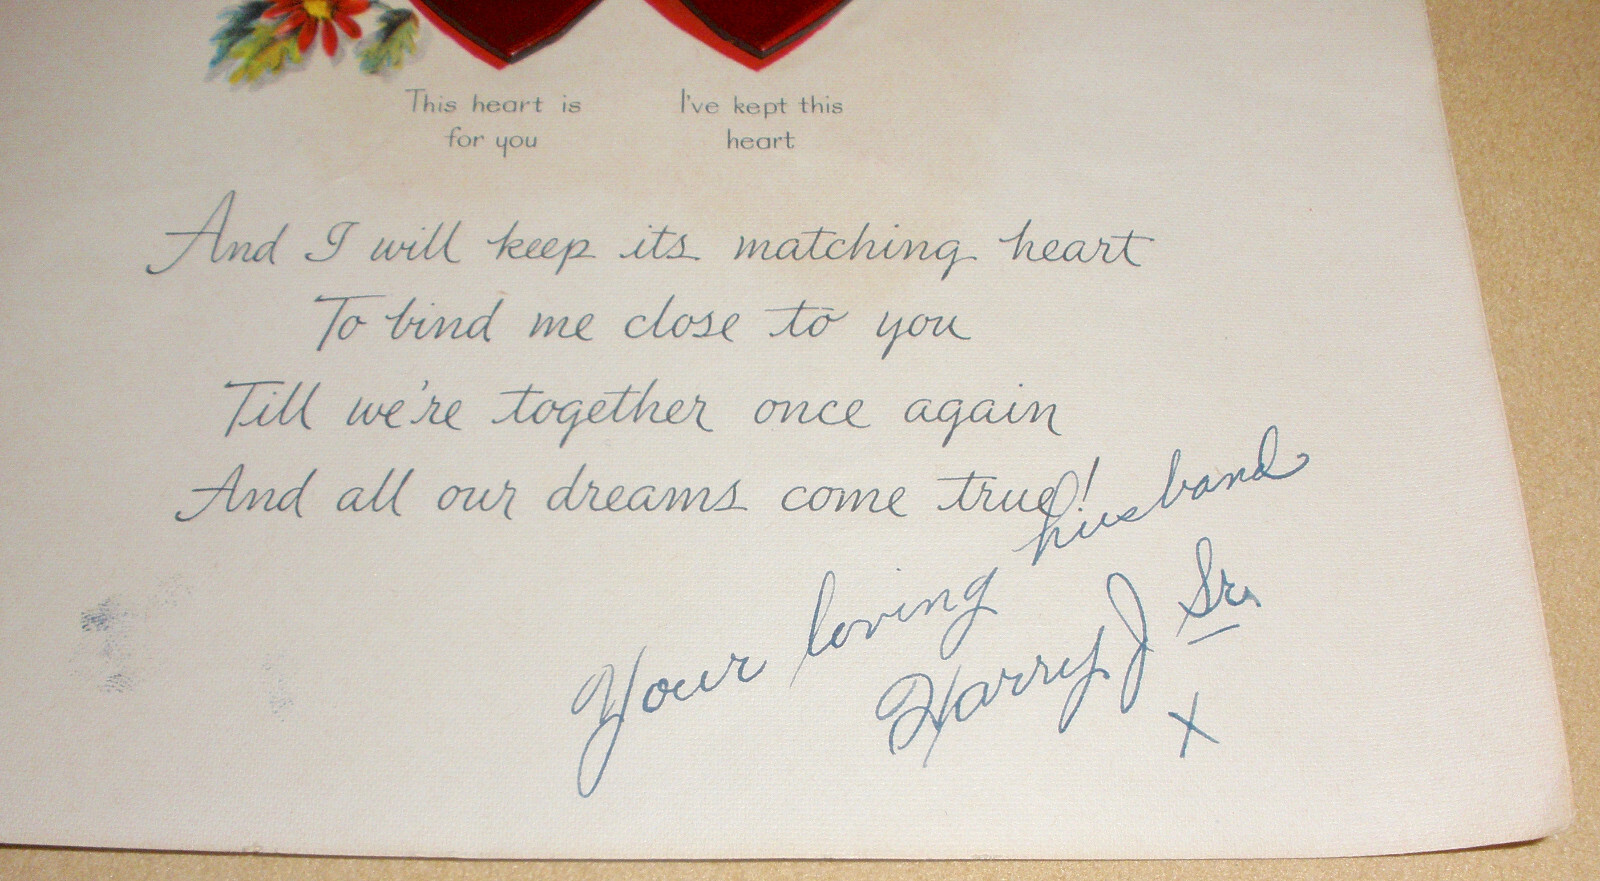 This heart is
for you
I've kept this
heart
And I will keep its matching heart
To bind me close to you
Till we're together once again
And all our dreams come true!
Your loving husband
Harry J Sr.
X